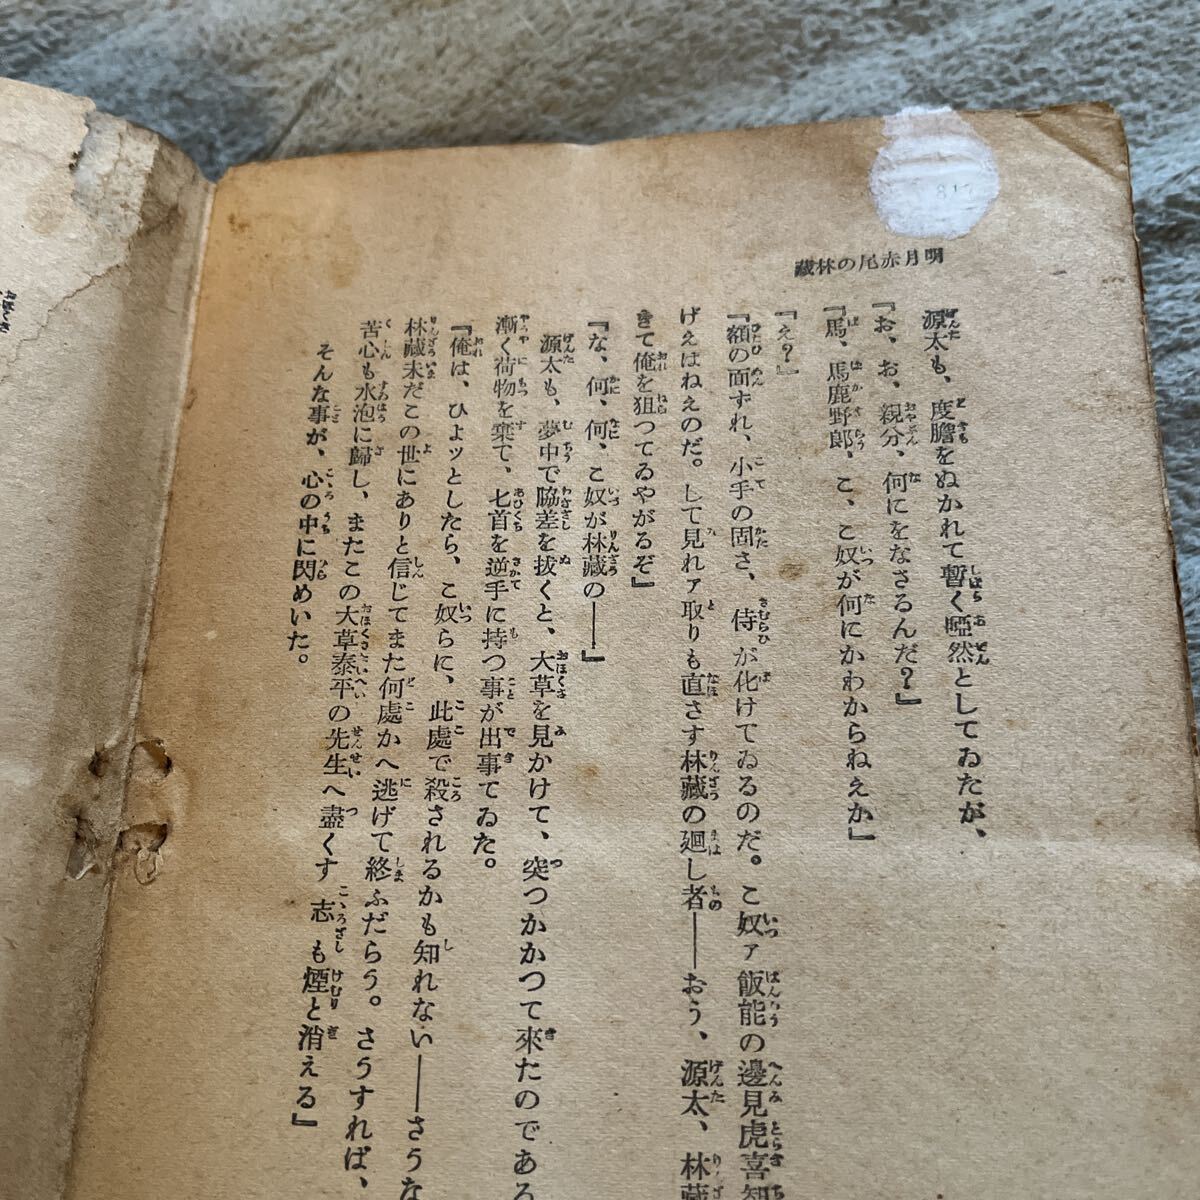 明月赤尾の林藏
源太も、度膽をぬかれて暫く啞然としてゐたが、
『お、お、親分、何にをなさるんだ？』
『馬、馬鹿野郎、こ、こ奴が何にかわからねえか』
『え？』
『額の面ずれ、小手の固さ、侍が化けてゐるのだ。こ奴ァ飯能の邊見虎喜智
げえはねえのだ。して見れァ取りも直さず林藏の廻し者――おう、源太、林藏
きて俺を狙つてゐやがるぞ』
『な、何、何、こ奴が林藏の――』
源太も、夢中で脇差を拔くと、大草を見かけて、突つかかつて來たのである
漸く荷物を棄て、匕首を逆手に持つ事が出事てゐた。
『俺は、ひょッとしたら、こ奴らに、此處で殺されるかも知れない――さうな
林藏未だこの世にありと信じてまた何處かへ逃げて終ふだらう。さうすれば、
苦心も水泡に歸し、またこの大草泰平の先生へ盡くす志も煙と消える』
そんな事が、心の中に閃めいた。